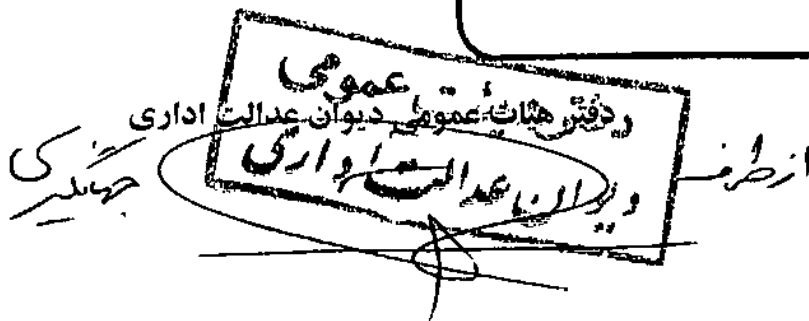 عمومی
دفتر هیات عمومی دیوان عدالت اداری
دیوان عدالت اداری
از طرف
جهانگیری